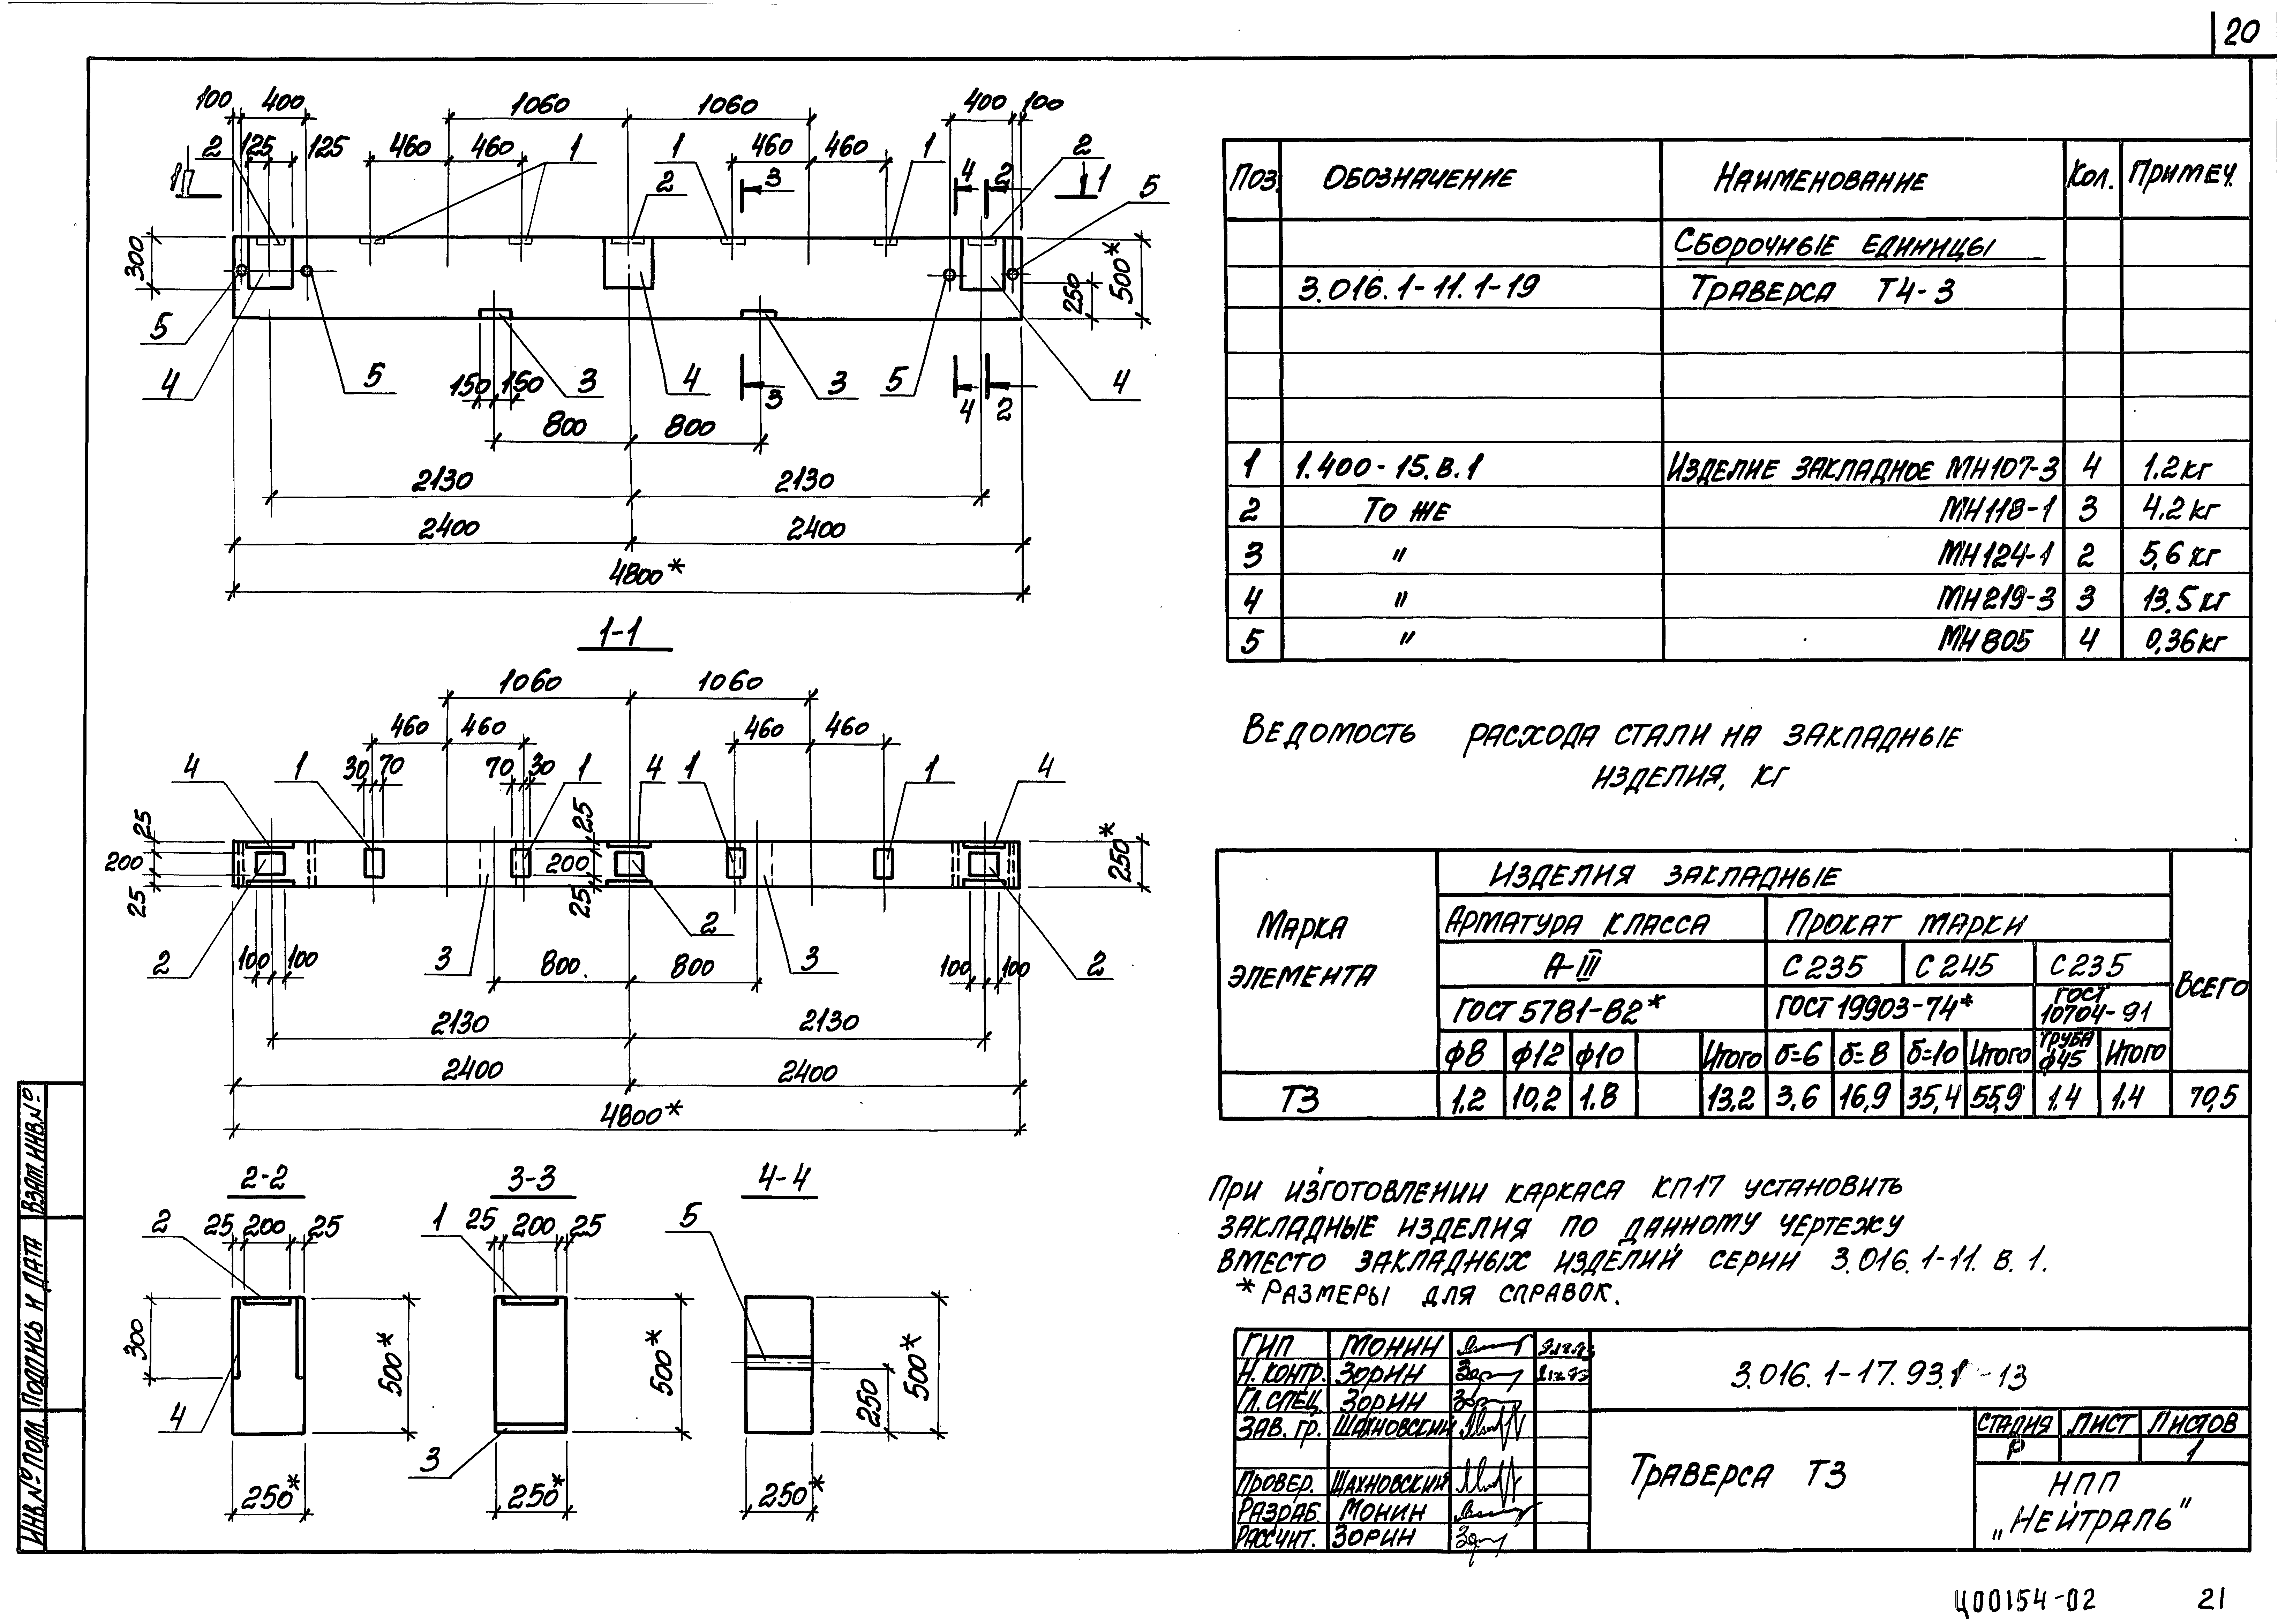 20
100 400 1060 1060 400 100
2 125 125 460 460 1 1 460 460 1 2
1 2 3 4 2 1 5
300 500* 250
5 4 5 150 150 3 4 3 3 5 4 2 4
800 800
2130 2130
2400 2400
4800*
1-1
1060 1060
460 460 460 460
4 1 30 70 70 30 1 4 1 1 4
25 200 25 25 200 25 250*
2 100 100 3 800 800 2 3 100 100 2
2130 2130
2400 2400
4800*
2-2 3-3 4-4
2 25 200 25 1 25 200 25 5
300 500* 500* 250 500*
4 3
250* 250* 250*
Поз. Обозначение Наименование Кол. Примеч.
Сборочные единицы
3.016.1-11.1-19 Траверса Т4-3
1 1.400-15.В.1 Изделие закладное МН107-3 4 1.2кг
2 То же МН118-1 3 4.2кг
3 " МН124-1 2 5,6 кг
4 " МН219-3 3 13.5кг
5 " МН805 4 0,36кг
Ведомость расхода стали на закладные
изделия, кг
Марка элемента
Изделия закладные
Всего
Арматура класса Прокат марки
А-III С235 С245 С235
ГОСТ 5781-82* ГОСТ 19903-74* ГОСТ 10704-91
ф8 ф12 ф10 Итого б=6 б=8 б=10 Итого Труба ф45 Итого
Т3 1.2 10,2 1.8 13,2 3.6 16,9 35,4 55,9 1.4 1.4 70,5
При изготовлении каркаса КП17 установить
закладные изделия по данному чертежу
вместо закладных изделий серии 3.016.1-11.В.1.
* Размеры для справок.
ГИП Монин
Н.контр. Зорин
Гл.спец. Зорин
Зав. гр. Шахновский
Провер. Шахновский
Разраб. Монин
Рассчит. Зорин
3.016.1-17.93.1-13
Траверса Т3
Стадия Лист Листов
Р 1
НПП
„Нейтраль"
Инв.№ подл. Подпись и дата Взам.инв.№
Ц00154-02 21